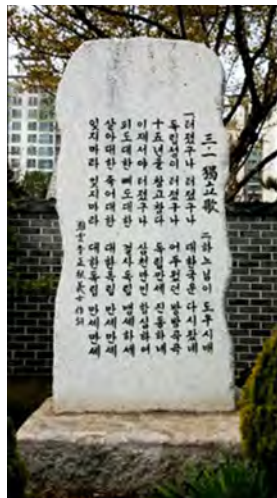 三·一 獨立歌
一 터졌구나 터졌구나
독립성이 터졌구나
十五년을 참고참다
이제서야 터졌구나
피도대한 뼈도대한
살아대한 죽어대한
잊지마라 잊지마라
二 하느님이 도우시매
대한국운 다시왔네
어두웠던 방방곡곡
독립만세 진동하네
삼천만민 합심하여
결사독립 맹세하세
대한독립 만세만세
대한독립 만세만세
義士作詞